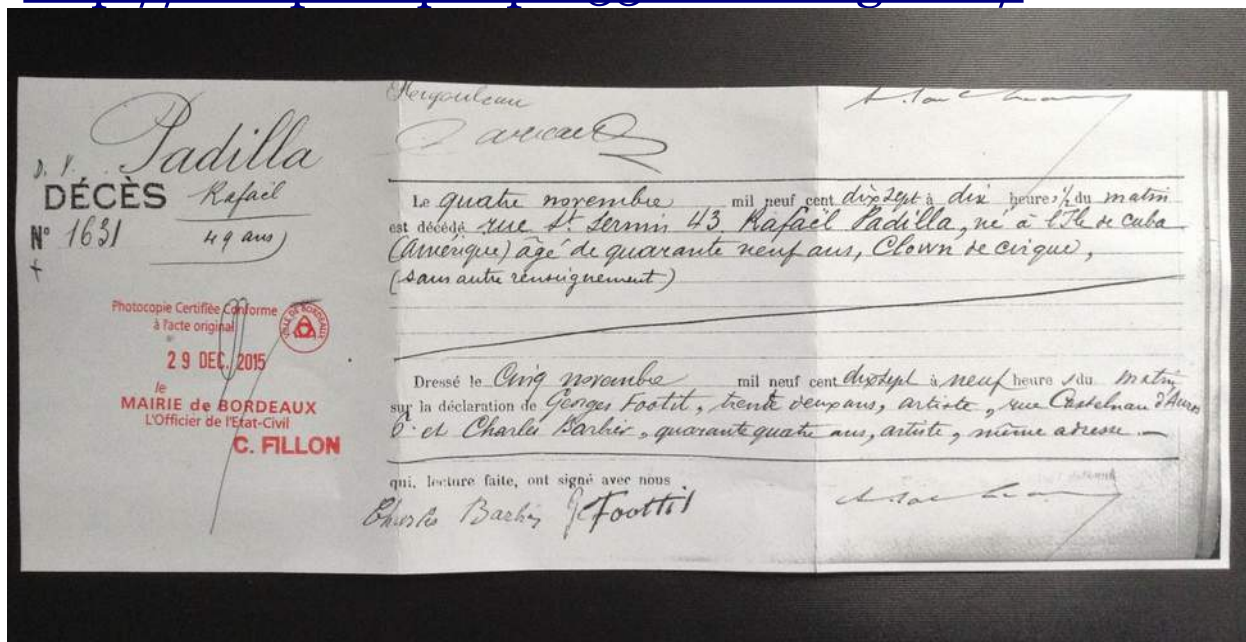 Padilla
D. V.
DÉCÈS Rafaël
N° 1631 49 ans
Photocopie Certifiée Conforme
à l'acte original
29 DEC. 2015
le
MAIRIE de BORDEAUX
L'Officier de l'Etat-Civil
C. FILLON
VILLE DE BORDEAUX
Le quatre novembre mil neuf cent dix sept à dix heures ½ du matin
est décédé rue St. Sernin 43 Rafaël Padilla, né à l'Ile de Cuba
(Amérique) âgé de quarante neuf ans, Clown de cirque,
(sans autre renseignement)
Dressé le Cinq novembre mil neuf cent dix sept à neuf heures du matin
sur la déclaration de Georges Footit, trente deux ans, artiste, rue Castelnau d'Auros
6 et Charles Barbier, quarante quatre ans, artiste, même adresse.
qui, lecture faite, ont signé avec nous
Charles Barbier Foottit